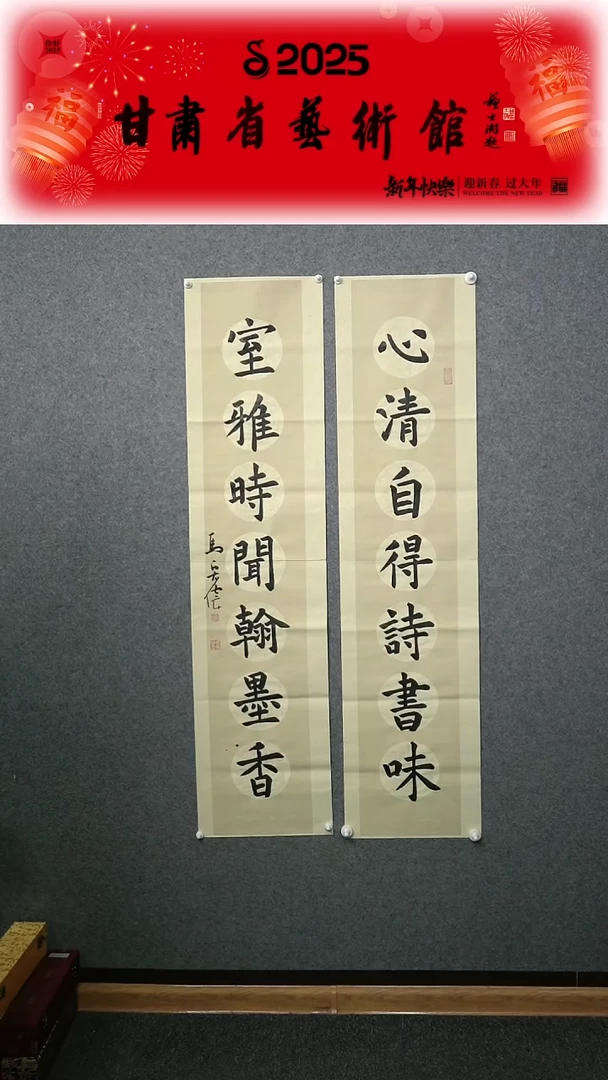 2025
甘肅省藝術館
新年快樂
迎新春 过大年
WELCOME THE NEW YEAR
心清自得詩書味
室雅時聞翰墨香